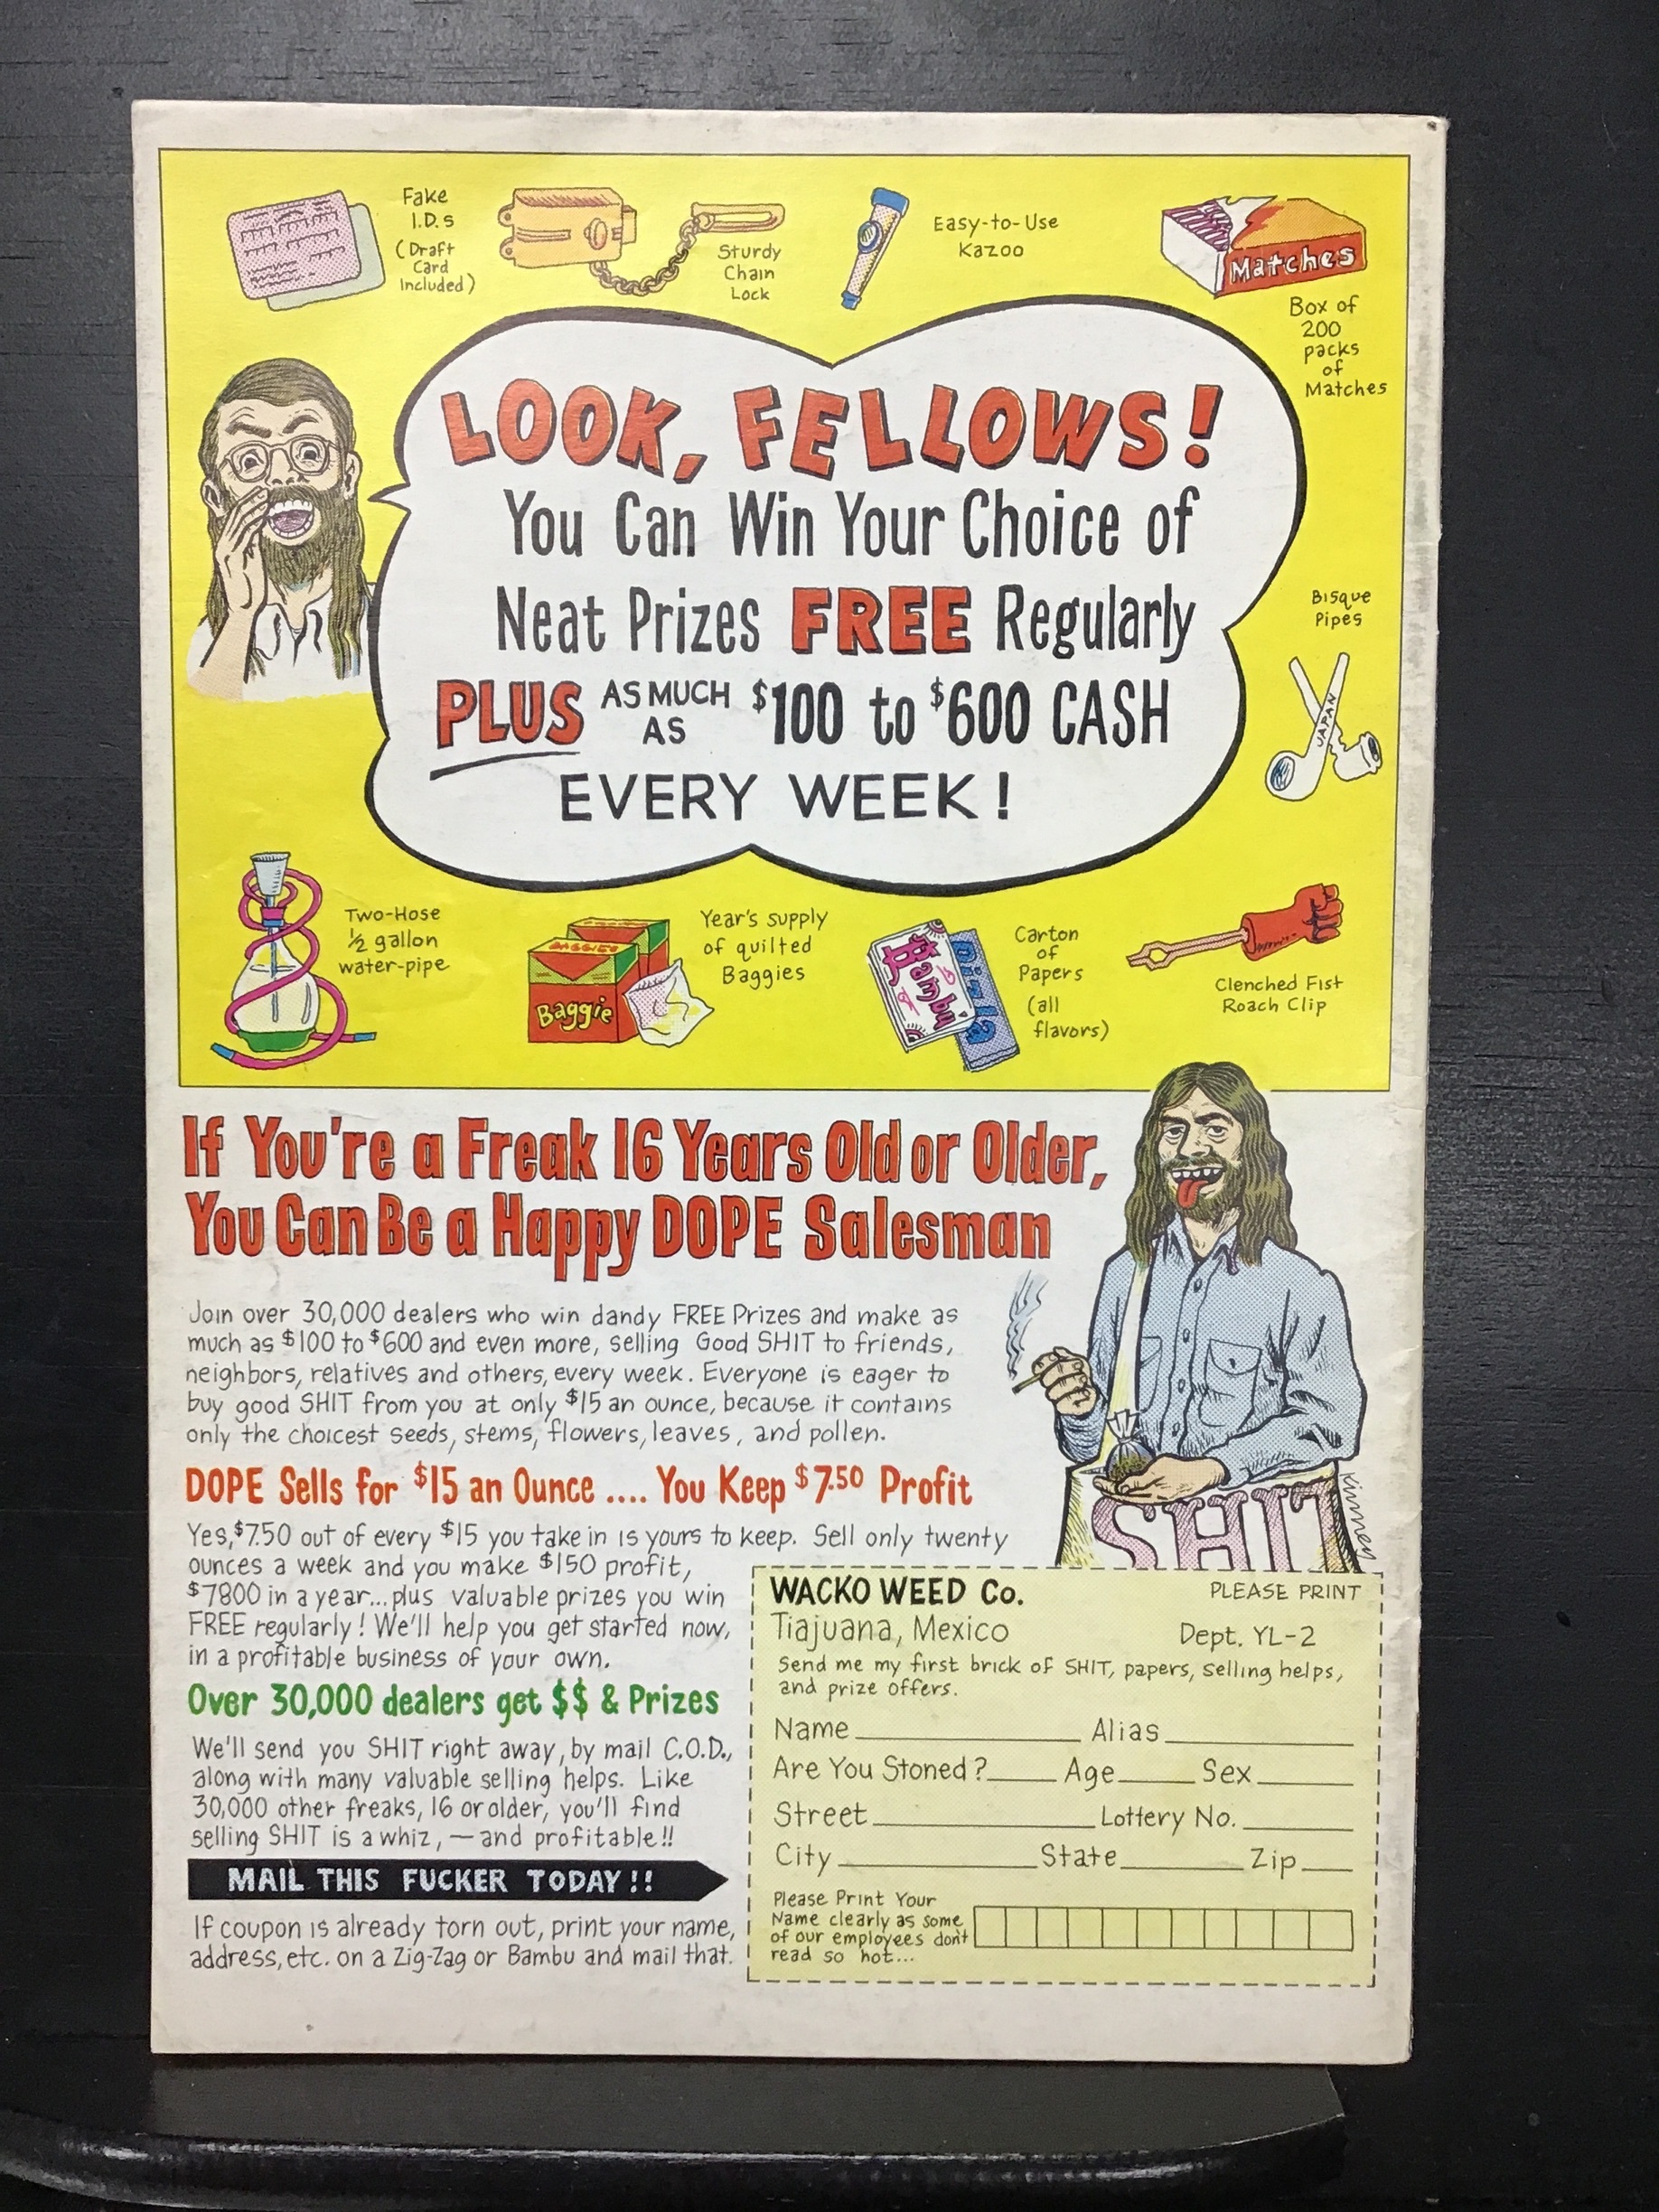 Fake
I.D.s
(Draft
Card
Included)
Sturdy
Chain
Lock
Easy-to-Use
Kazoo
Matches
Box of
200
packs
of
Matches
LOOK, FELLOWS!
You Can Win Your Choice of
Neat Prizes FREE Regularly
PLUS AS MUCH AS $100 to $600 CASH
EVERY WEEK!
Bisque
Pipes
JAPAN
Two-Hose
½ gallon
water-pipe
BAGGIES
Baggie
Year's supply
of quilted
Baggies
Bambu
Carton
of
Papers
(all
flavors)
Clenched Fist
Roach Clip
If You're a Freak 16 Years Old or Older,
You Can Be a Happy DOPE Salesman
Join over 30,000 dealers who win dandy FREE Prizes and make as
much as $100 to $600 and even more, selling Good SHIT to friends,
neighbors, relatives and others, every week. Everyone is eager to
buy good SHIT from you at only $15 an ounce, because it contains
only the choicest seeds, stems, flowers, leaves, and pollen.
DOPE Sells for $15 an Ounce .... You Keep $7.50 Profit
Yes, $7.50 out of every $15 you take in is yours to keep. Sell only twenty
ounces a week and you make $150 profit,
$7800 in a year... plus valuable prizes you win
FREE regularly! We'll help you get started now,
in a profitable business of your own.
Over 30,000 dealers get $$ & Prizes
We'll send you SHIT right away, by mail C.O.D.,
along with many valuable selling helps. Like
30,000 other freaks, 16 or older, you'll find
selling SHIT is a whiz, — and profitable!!
MAIL THIS FUCKER TODAY!!
If coupon is already torn out, print your name,
address, etc. on a Zig-Zag or Bambu and mail that.
SHIT
Kinney
WACKO WEED Co. PLEASE PRINT
Tiajuana, Mexico Dept. YL-2
Send me my first brick of SHIT, papers, selling helps,
and prize offers.
Name Alias
Are You Stoned? Age Sex
Street Lottery No.
City State Zip
Please Print Your
Name clearly as some
of our employees don't
read so hot...